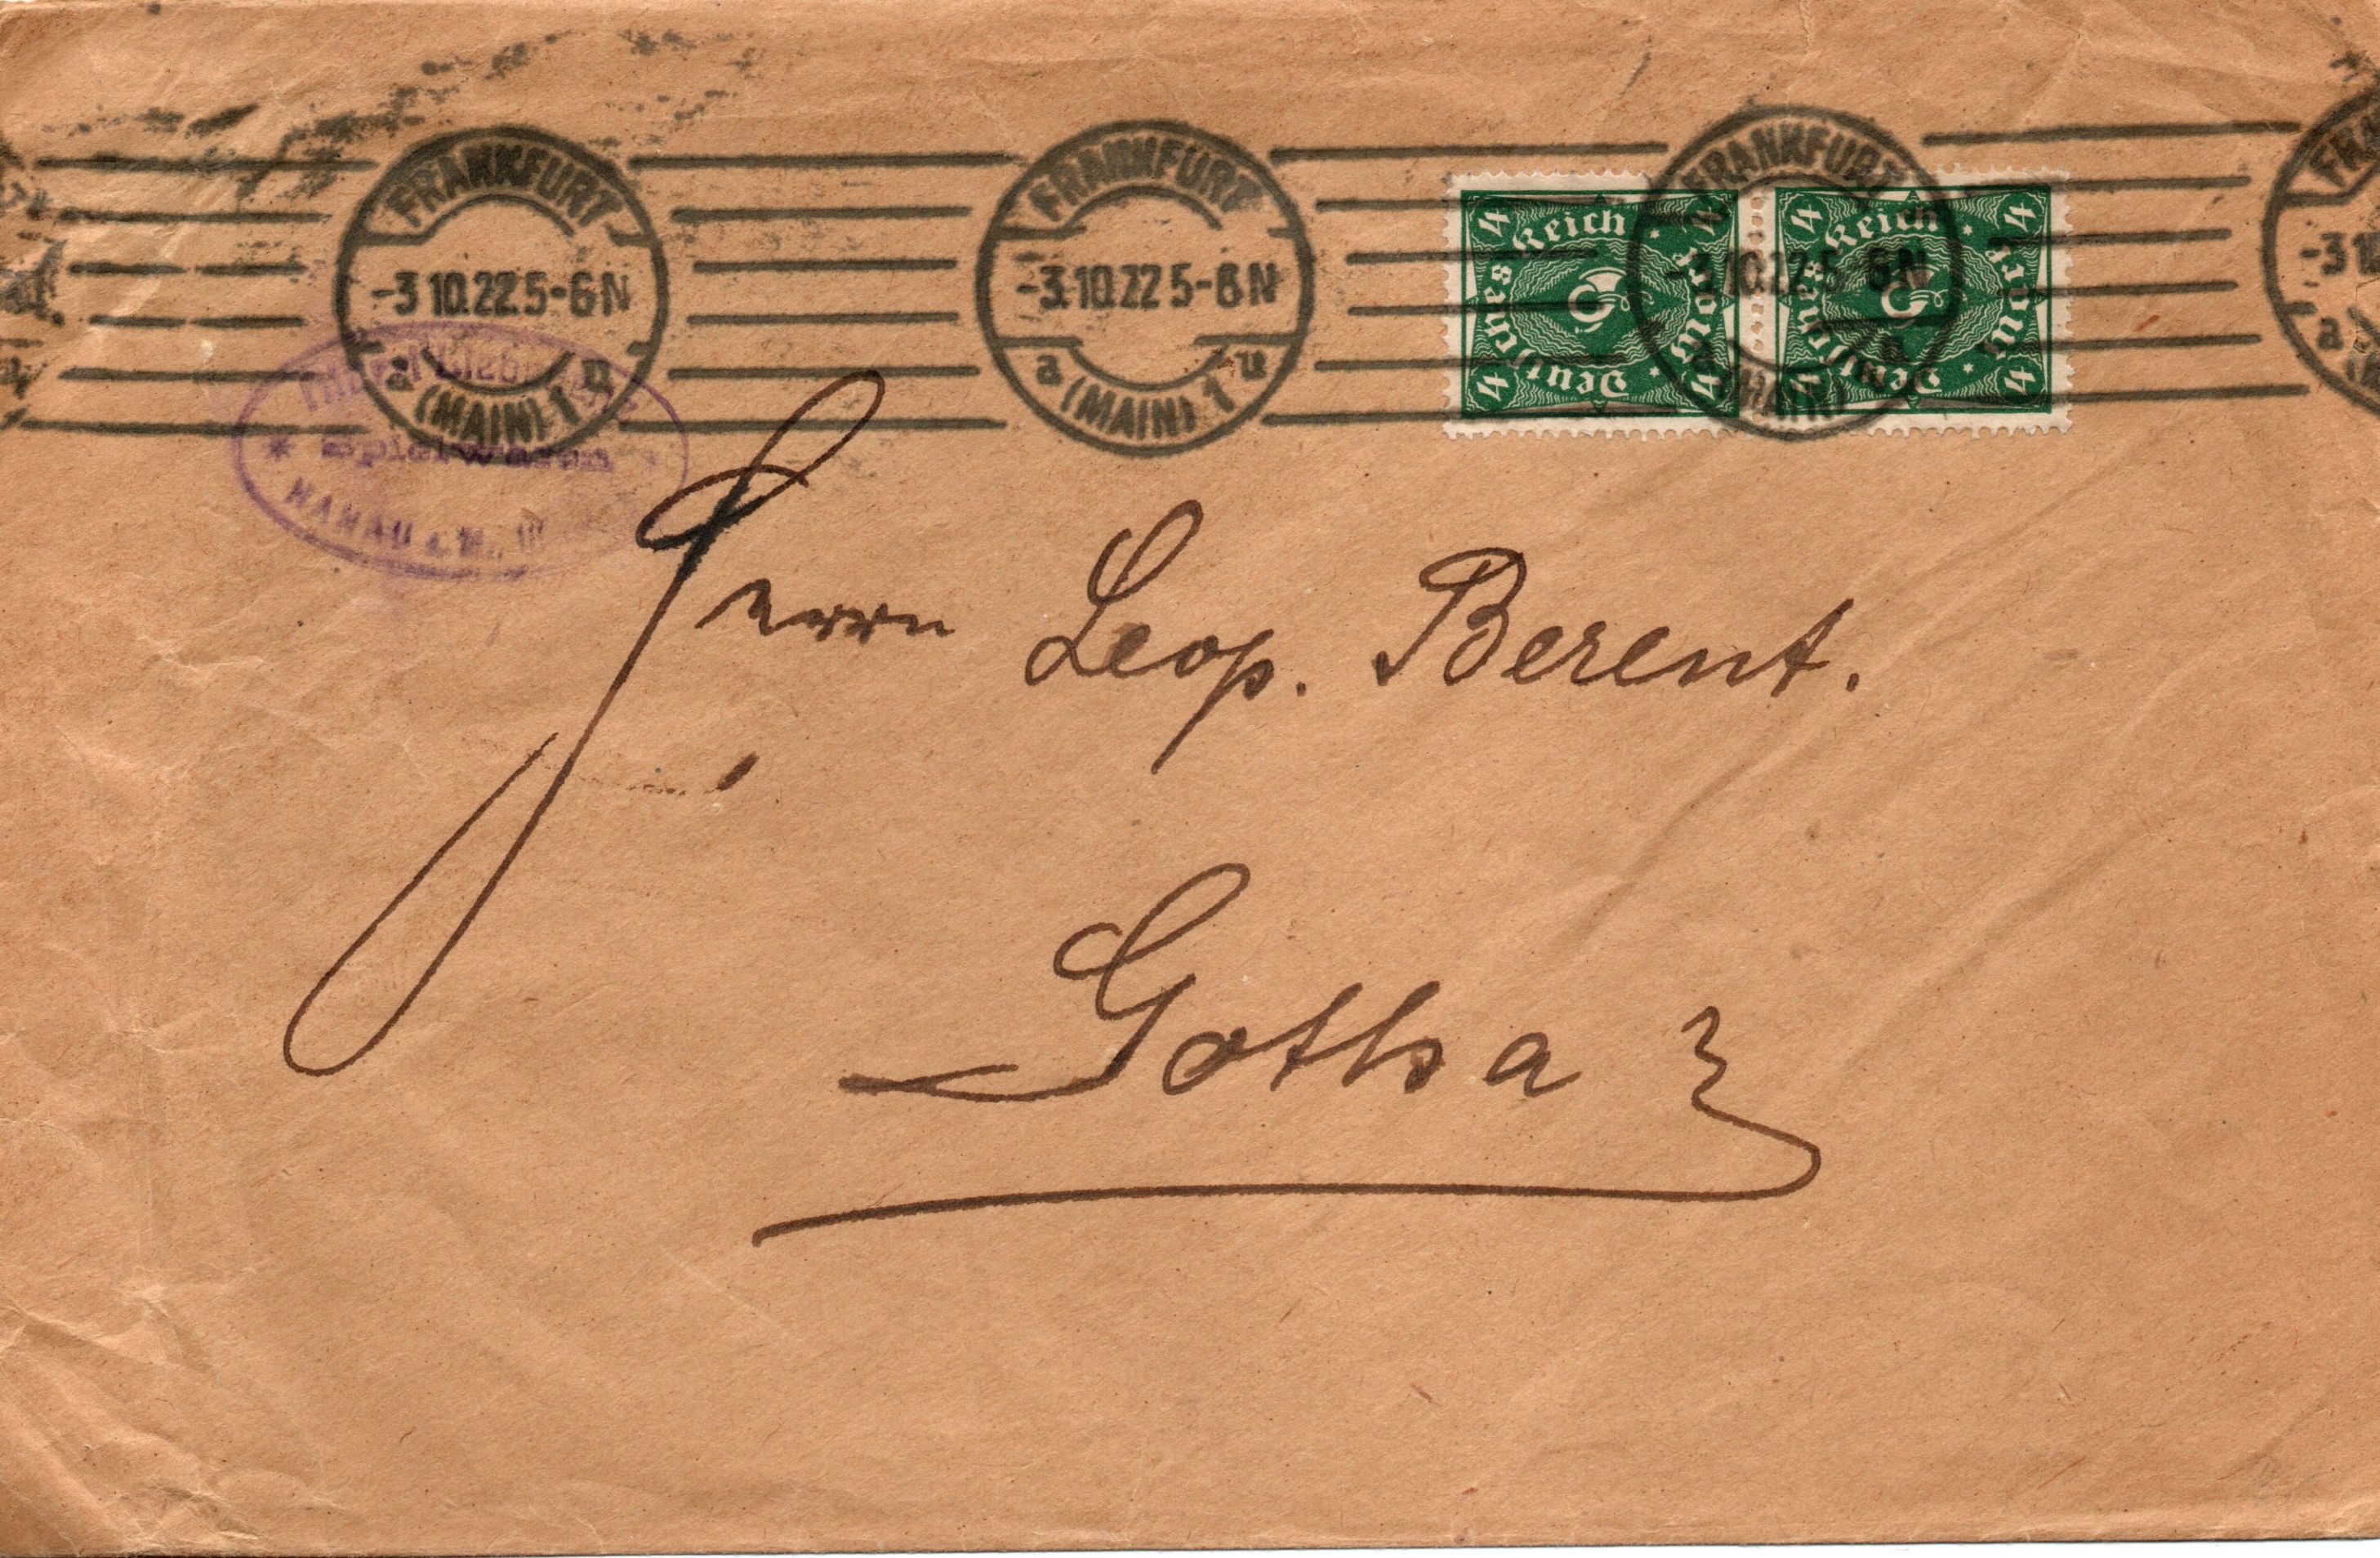 FRANKFURT
-3.10.22.5-6N
a (MAIN) 1 u
FRANKFURT
-3.10.22 5-6N
a (MAIN) 1 u
FRANKFURT
-3.10.22 5-6N
(MAIN)
4 Deutsches Reich 4 Mark 4
4 Deutsches Reich 4 Mark 4
* Spielwaren *
HANAU a. M.
Herrn Leop. Berent.
Gotha